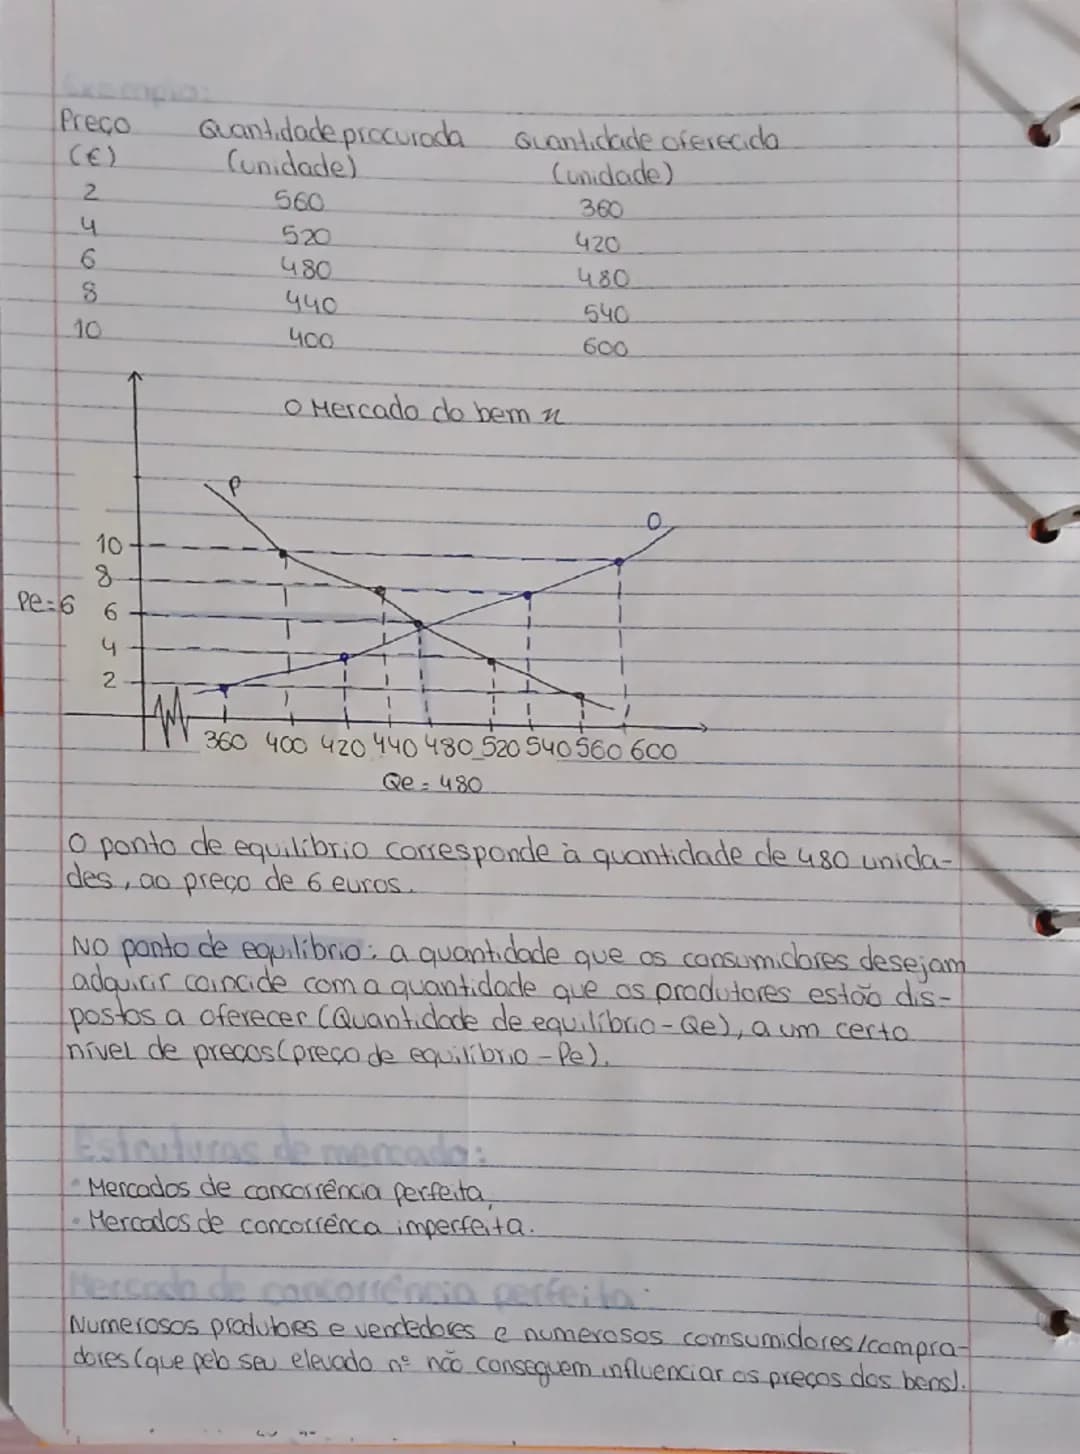 Exemplo:
Preço Quantidade procurada Quantidade oferecida
(€) (unidade) (unidade)
2 560 360
4 520 420
6 480 480
8 440 540
10 400 600
O Mercado do bem x
P
O
10
8
Pe=6 6
4
2
360 400 420 440 480 520 540 560 600
Qe = 480
O ponto de equilíbrio corresponde à quantidade de 480 unida-
des, ao preço de 6 euros.
No ponto de equilíbrio: a quantidade que os consumidores desejam
adquirir coincide com a quantidade que os produtores estão dis-
postos a oferecer (Quantidade de equilíbrio - Qe), a um certo
nível de preços (preço de equilíbrio - Pe).
Estruturas de mercado:
• Mercados de concorrência perfeita,
• Mercados de concorrênca imperfeita.
Mercado de concorrência perfeita:
Numerosos produtores e vendedores e numerosos comsumidores/compra-
dores (que pelo seu elevado nº não conseguem influenciar os preços dos bens).